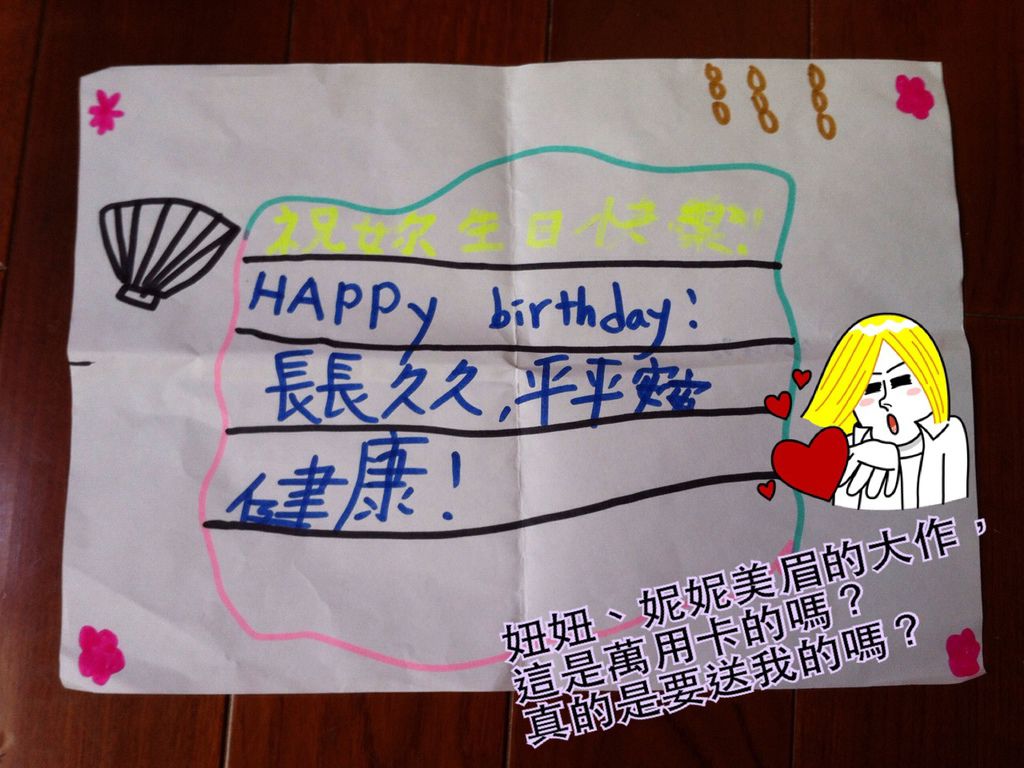 祝妳生日快樂!!
HAPPy birthday:
長長久久,平平安安
健康!
妞妞、妮妮美眉的大作,
這是萬用卡的嗎?
真的是要送我的嗎?